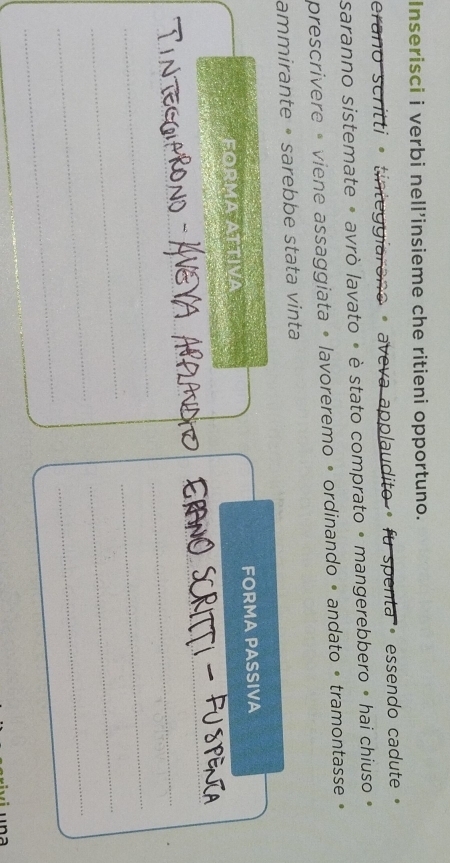 Inserisci i verbi nell'insieme che ritieni opportuno.
erano scritti • tinteggiarono • aveva applaudito • fu spenta • essendo cadute •
saranno sistemate • avrò lavato • è stato comprato • mangerebbero • hai chiuso •
prescrivere • viene assaggiata • lavoreremo • ordinando • andato • tramontasse •
ammirante • sarebbe stata vinta
FORMA ATTIVA
TINTEGGIARONO - AVEVA APPLAUDITO
FORMA PASSIVA
ERANO SCRITTI - FU SPENTA
una